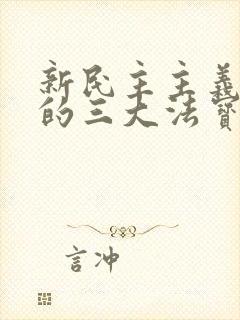 新民主主義
的三大法寶
言冲